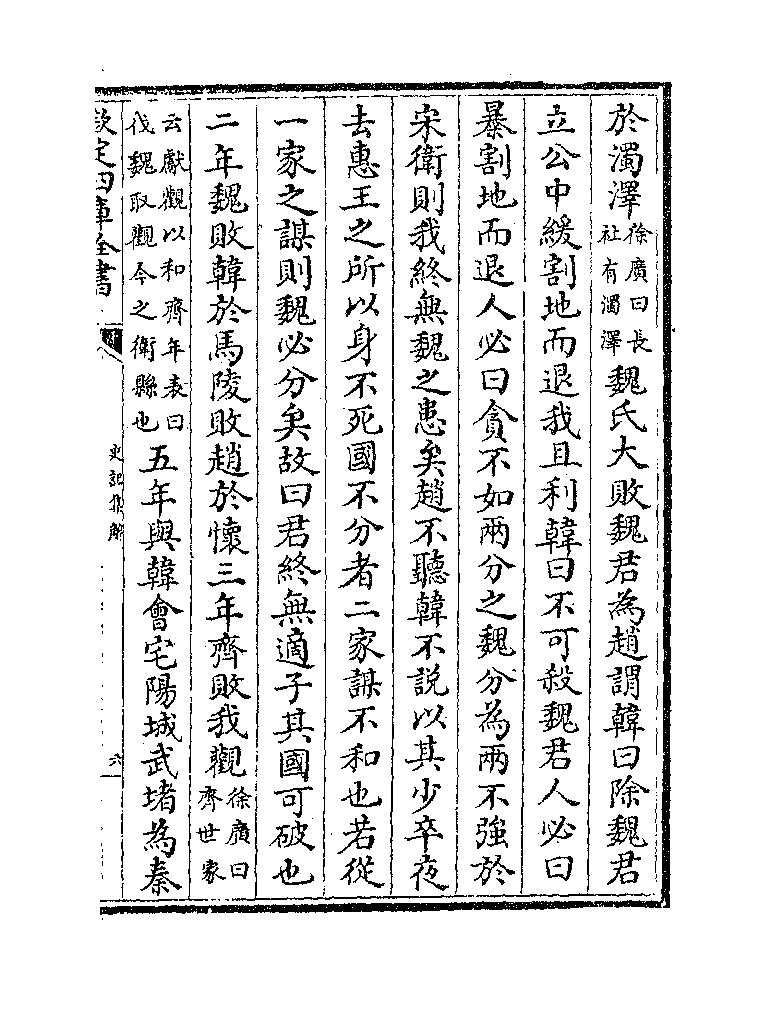 於濁澤徐廣曰長社有濁澤魏氏大敗魏君為趙謂韓曰除魏君
立公中緩割地而退我且利韓曰不可殺魏君人必曰
暴割地而退人必曰貪不如兩分之魏分為兩不強於
宋衛則我終無魏之患矣趙不聽韓不說以其少卒夜
去惠王之所以身不死國不分者二家謀不和也若從
一家之謀則魏必分矣故曰君終無適子其國可破也
二年魏敗韓於馬陵敗趙於懷三年齊敗我觀徐廣曰齊世家
云獻觀以和齊年表曰伐魏取觀今之衛縣也五年與韓會宅陽城武堵為秦
欽定四庫全書
史記集解
六